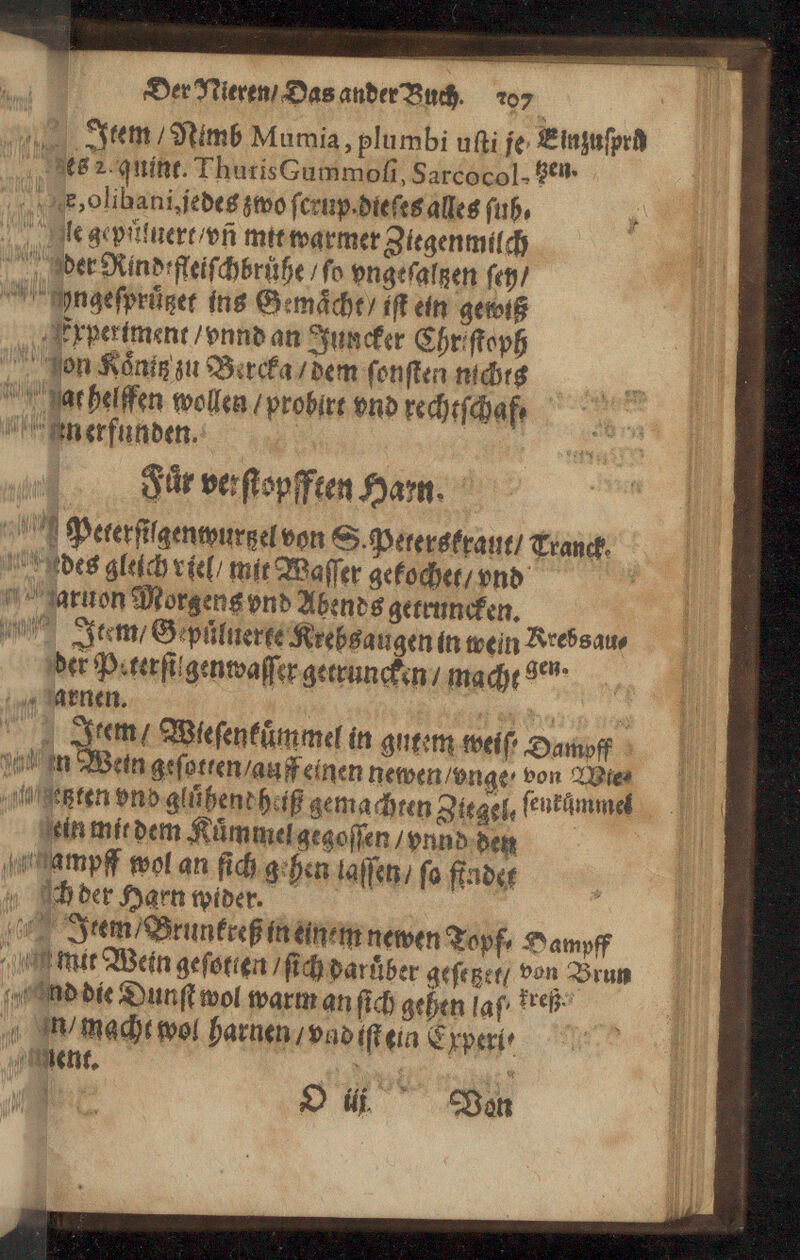 Der Nieren/ Das ander Buch. 107
Item / Nimb Mumia, plumbi uſti je Einzuſprü
des 2. quint. Thuris Gummoſi, Sarcocol- tzen.
æ, olibani, jedes zwo ſcrup. dieſes alles ſub-
le gepüluert/ vñ mit warmer Ziegenmilch
oder Rindfleiſchbrühe / ſo vngeſaltzen ſey/
yngeſprützet ins Gemächt/ iſt ein gewiß
Experiment / vnnd an Juncker Chriſtoph
von Könitz zu Bercka / dem ſonſten nichts
hat helffen wollen / probirt vnd rechtſchaf-
en erfunden.
Für verſtopfften Harn.
Peterſilgenwurtzel von S. Peterskraut/ Tranck.
jdes gleich viel/ mit Waſſer gekochet/ vnd
daruon Morgens vnd Abends getruncken.
Item/ Gepülnerte Krebsaugen in wein Krebsau-
oder Peterſilgenwaſſer getruncken/ macht gen.
harnen.
Item / Wieſenkümmel in gutem weiſ- Dampff
en Wein geſotten/ auff einen newen/ vnge- von Wie-
netzten vnd glühend heiß gemachten Ziegel, ſenkümmel
ein mit dem Kümmel gegoſſen / vnnd den
Dampff wol an ſich gehen laſſen/ ſo findet
ſich der Harn wider.
Item/ Brunkreß in einem newen Topf- Dampff
mit Wein geſotten / ſich darüber geſetzet/ von Brun
vnd die Dunſt wol warm an ſich gehen laſ- kreß.
en/ macht wol harnen / vnd iſt ein Experi-
ment.
O iij Von